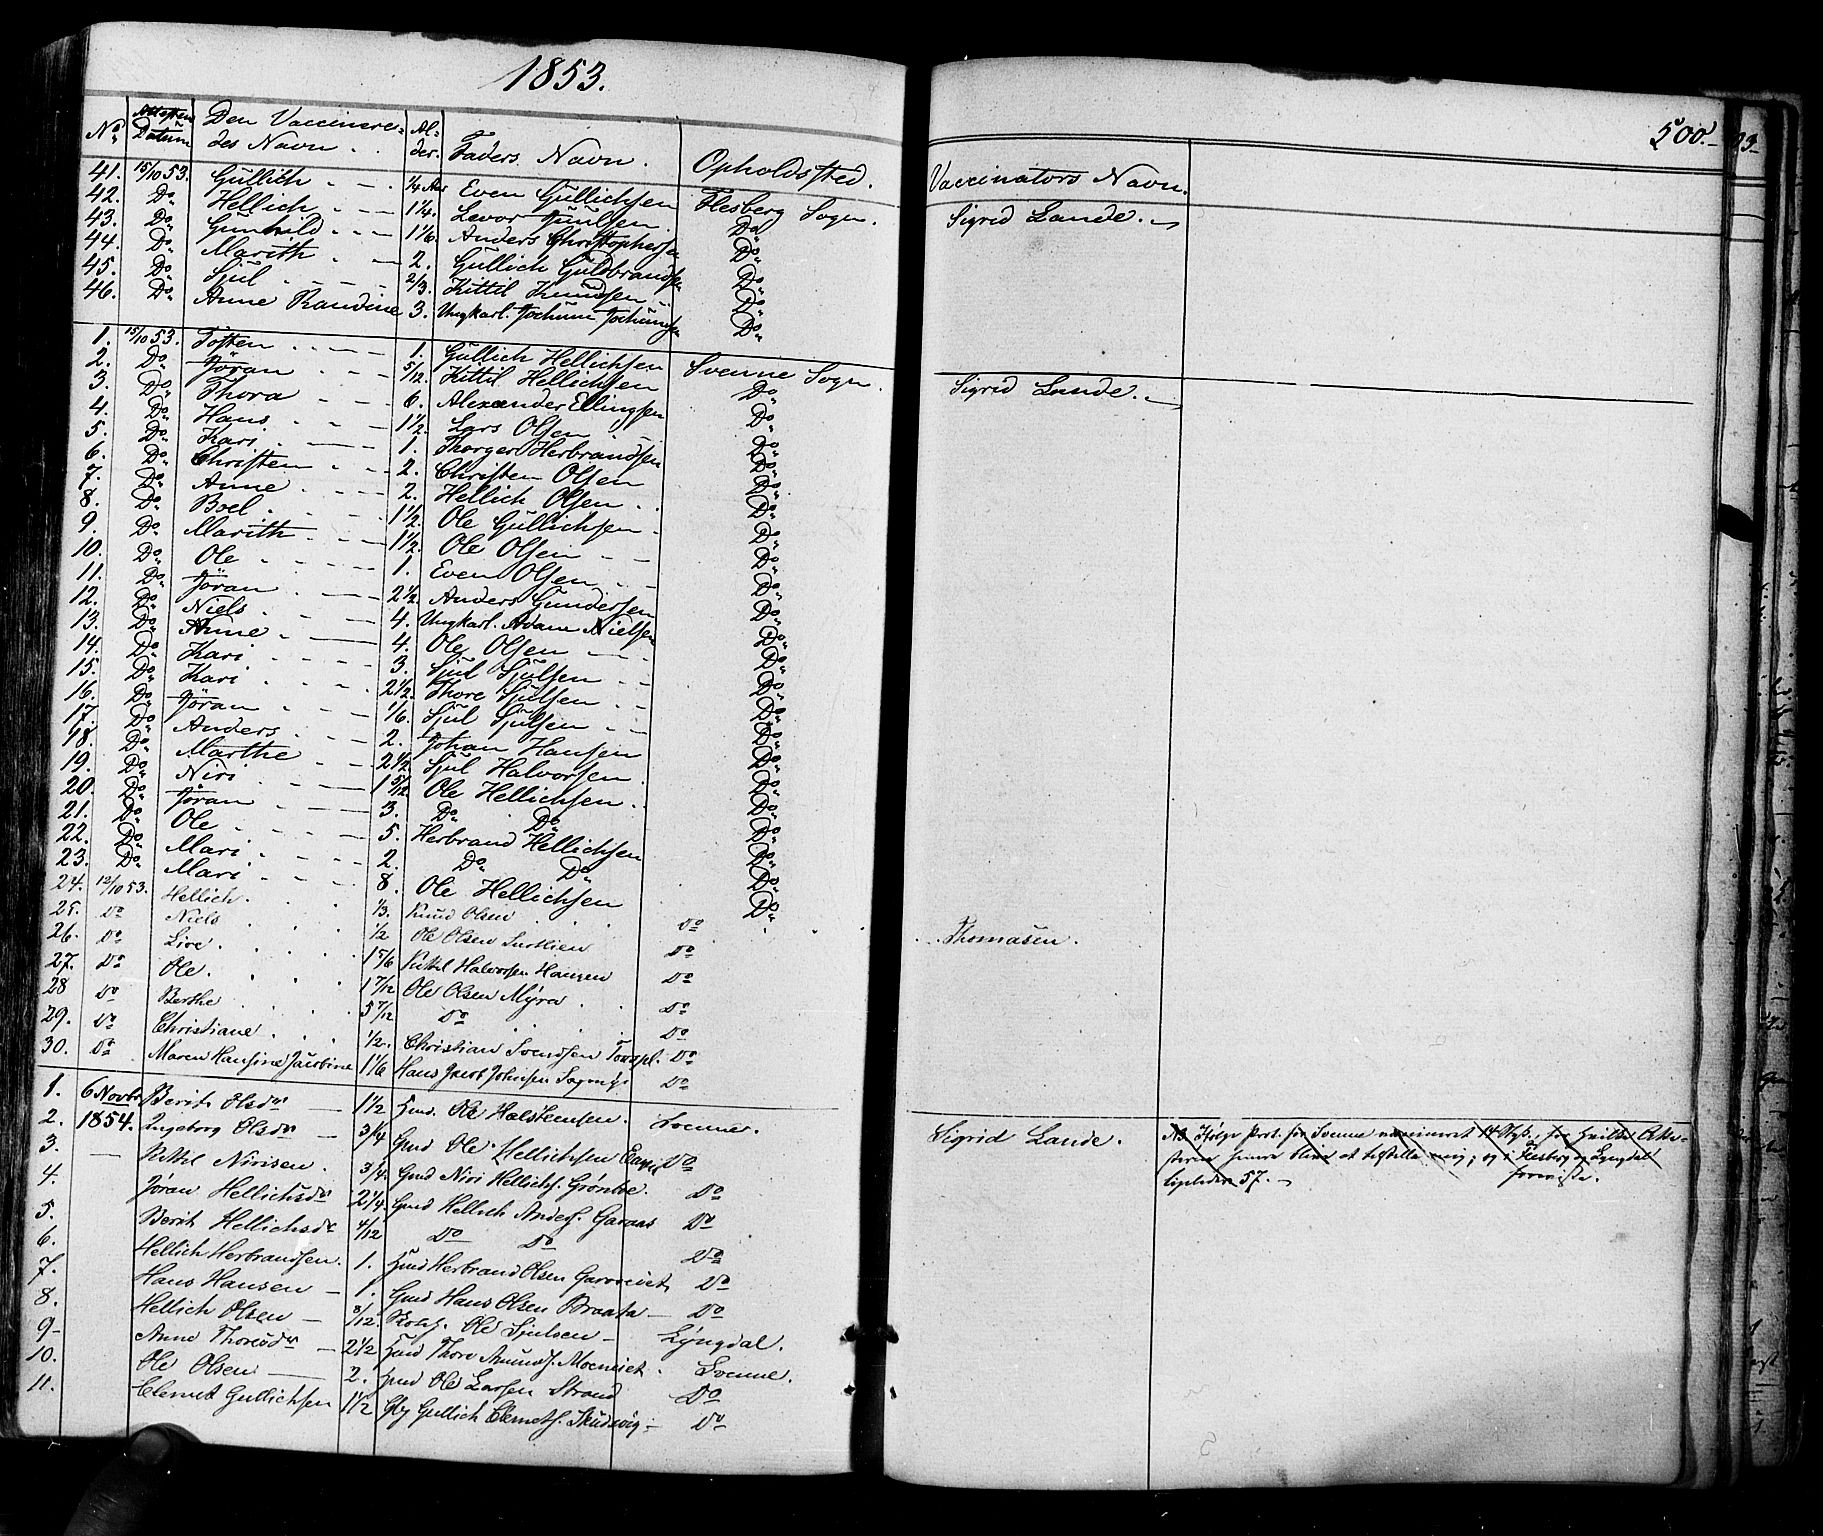 1853.
No. Attestens Datum Den Vaccineredes Navn. Alder. Faders Navn. Opholdsted.
41. 15/10 53. Gullich 1/4 Aar Even Gullichsen Flesberg Sogn.
42. Do Hellich 1 1/4. Levor Juulsen Do
43. Do Gunhild 1 1/6. Anders Christophersen Do
44. Do Marith 2. Gullich Guldbrandsen Do
45. Do Sjul 2/3. Kittil Knudsen Do
46. Do Anne Randine 3. Ungkarl. Jochum Jochumsen Do
1. 15/10 53. Tosten 1. Gullich Hellichsen Svenne Sogn.
2. Do Jöran 5/12. Kittil Hellichsen Do
3. Do Thora 6. Alexander Ellingsen Do
4. Do Hans 1 1/2. Lars Olsen Do
5. Do Kari 1. Thorger Herbrandsen Do
6. Do Christen 2. Christen Olsen Do
7. Do Anne 2. Hellich Olsen Do
8. Do Boel 1 1/2. Ole Gullichsen Do
9. Do Marith 1 1/2. Ole Olsen Do
10. Do Ole 1. Even Olsen Do
11. Do Jöran 2 1/2. Anders Gundersen Do
12. Do Niels 4. Ungkarl. Adam Nielsen Do
13. Do Anne 4. Ole Olsen Do
14. Do Kari 3. Sjul Sjulsen Do
15. Do Kari 2 1/2. Thore Sjulsen Do
16. Do Jöran 1/6. Sjul Sjulsen Do
17. Do Anders 2. Johan Hansen Do
18. Do Marthe 2 1/2. Sjul Halvorsen Do
19. Do Niri 1 5/12 Ole Hellichsen Do
20. Do Jöran 3. Do Do Do
21. Do Ole 5. Herbrand Hellichsen Do
22. Do Mari 2. Do Do Do
23. Do Mari 8. Ole Hellichsen Do
24. 12/10 53. Hellich. 1/3. Knud Olsen Do
25. Do Niels 1/2 Ole Olsen Do
26. Do Live 1 5/6 Kittil Halvorsen Haugen Do
27. Do Ole. 1 7/12 Ole Olsen Myra Do
28 Do Berthe 5 7/12 Do Do
29. Do Christiane 1/2. Christian Svendsen Do
30. Do Maren Hansine Jacobine 1 1/6 Hans Jacob Johnsen Do
1. 6 Novbr Berit Olsdr 1 1/2 Gmd. Ole Halstensen Svenne.
2. 1854. Ingeborg Olsdr 3/4 Gmd Ole Hellichsen Do
3. Kittil Nirisen. 3/4. Gmd Niri Hellichs. Do
4. Jöran Hellichsdr 2 1/4 Gmd Hellich Anders. Garaas Do
5. Berit Hellichsdr 4/12 Do Do Do
6. Hellich Herbrandsen. 1. Gmd Herbrand Olsen Do
7. Hans Hansen 1. Gmd Hans Olsen Braata Do
8. Hellich Olsen 8/12 Ole Sjulsen Lyngdal.
9. Anne Thoresdr 2 1/2 Gmd Thore Svenne.
10. Ole Olsen 2. Gmd Ole Larsen Strand Do
11. Clemet Gullichsen 1 1/2 Gullich Clemets. Do
500.
Vaccinators Navn.
Sigrid Lande.
Sigrid Lande.
Thomasen.
Sigrid Lande.
NB Ifølge Prot. for Svenne vaccineret 14 Stk., for hvilke Atte-
sterne bliver at tilstille mig; og i Flesberg og Lyngdal
57.